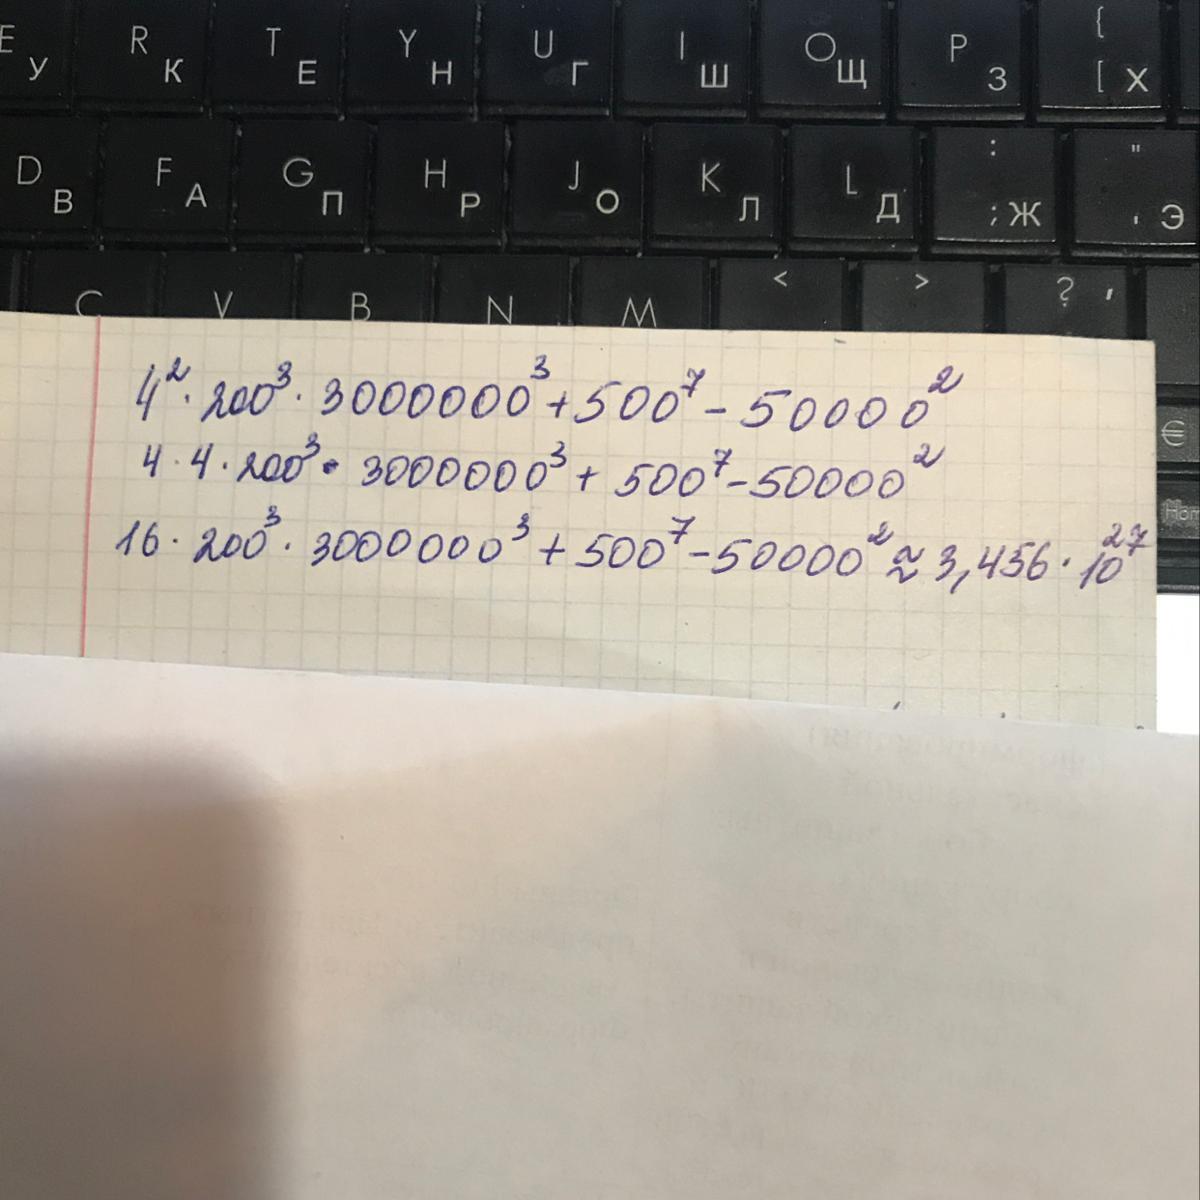 E У R К T Е Y Н U Г I Ш O Щ P З { [ Х
D В F А G П H Р J О K Л L Д : ; Ж " ' Э
C V B N M < > ? ,
4² · 200³ · 3000000³ + 500⁷ - 50000²
4 · 4 · 200³ · 3000000³ + 500⁷ - 50000²
16 · 200³ · 3000000³ + 500⁷ - 50000² ≈ 3,456 · 10²⁷
€
Hom